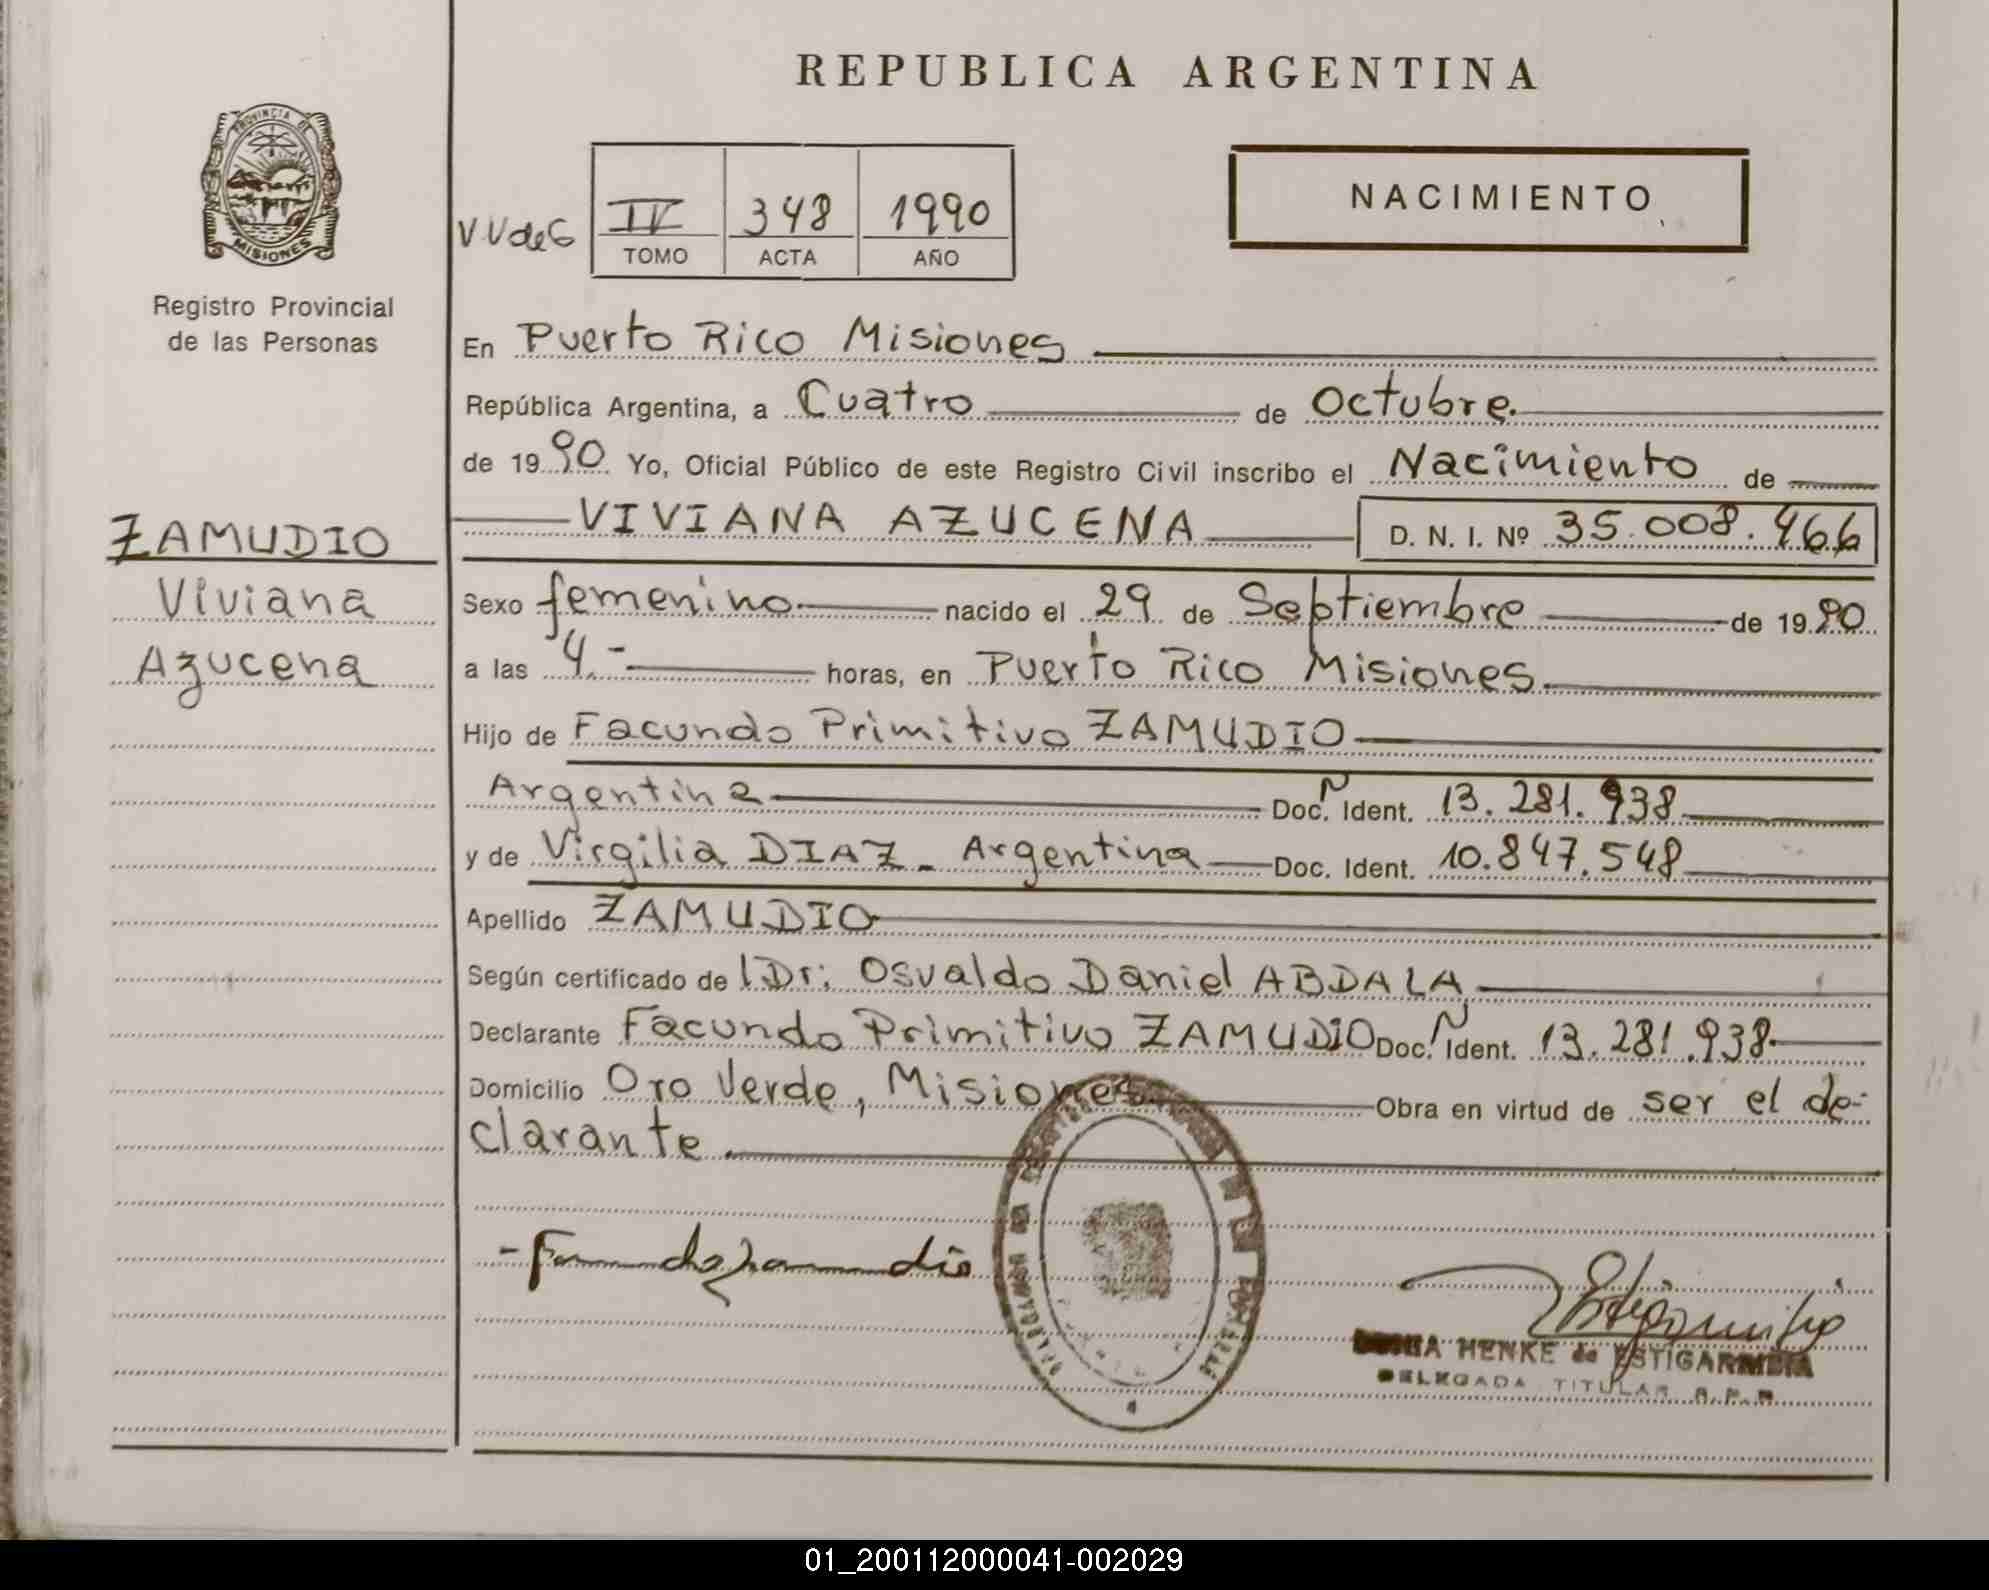 REPUBLICA ARGENTINA
PROVINCIA DE
MISIONES
Registro Provincial
de las Personas
VVdeG
IV 348 1990
TOMO ACTA AÑO
NACIMIENTO
En Puerto Rico Misiones
República Argentina, a Cuatro de Octubre.
de 1990 Yo, Oficial Público de este Registro Civil inscribo el Nacimiento de
VIVIANA AZUCENA D. N. I. Nº 35.008.466
ZAMUDIO
Viviana
Azucena
Sexo femenino nacido el 29 de Septiembre de 1990
a las 4.- horas, en Puerto Rico Misiones
Hijo de Facundo Primitivo ZAMUDIO
Argentina Doc. N Ident. 13.281.938
y de Virgilia DIAZ - Argentina Doc. Ident. 10.847.548
Apellido ZAMUDIO
Según certificado de l Dr: Osvaldo Daniel ABDALA
Declarante Facundo Primitivo ZAMUDIO Doc. N Ident. 13.281.938
Domicilio Oro Verde, Misiones Obra en virtud de ser el de-
clarante.
HENKE de ESTIGARRIBIA
DELEGADA TITULAR R.P.P.
01_200112000041-002029